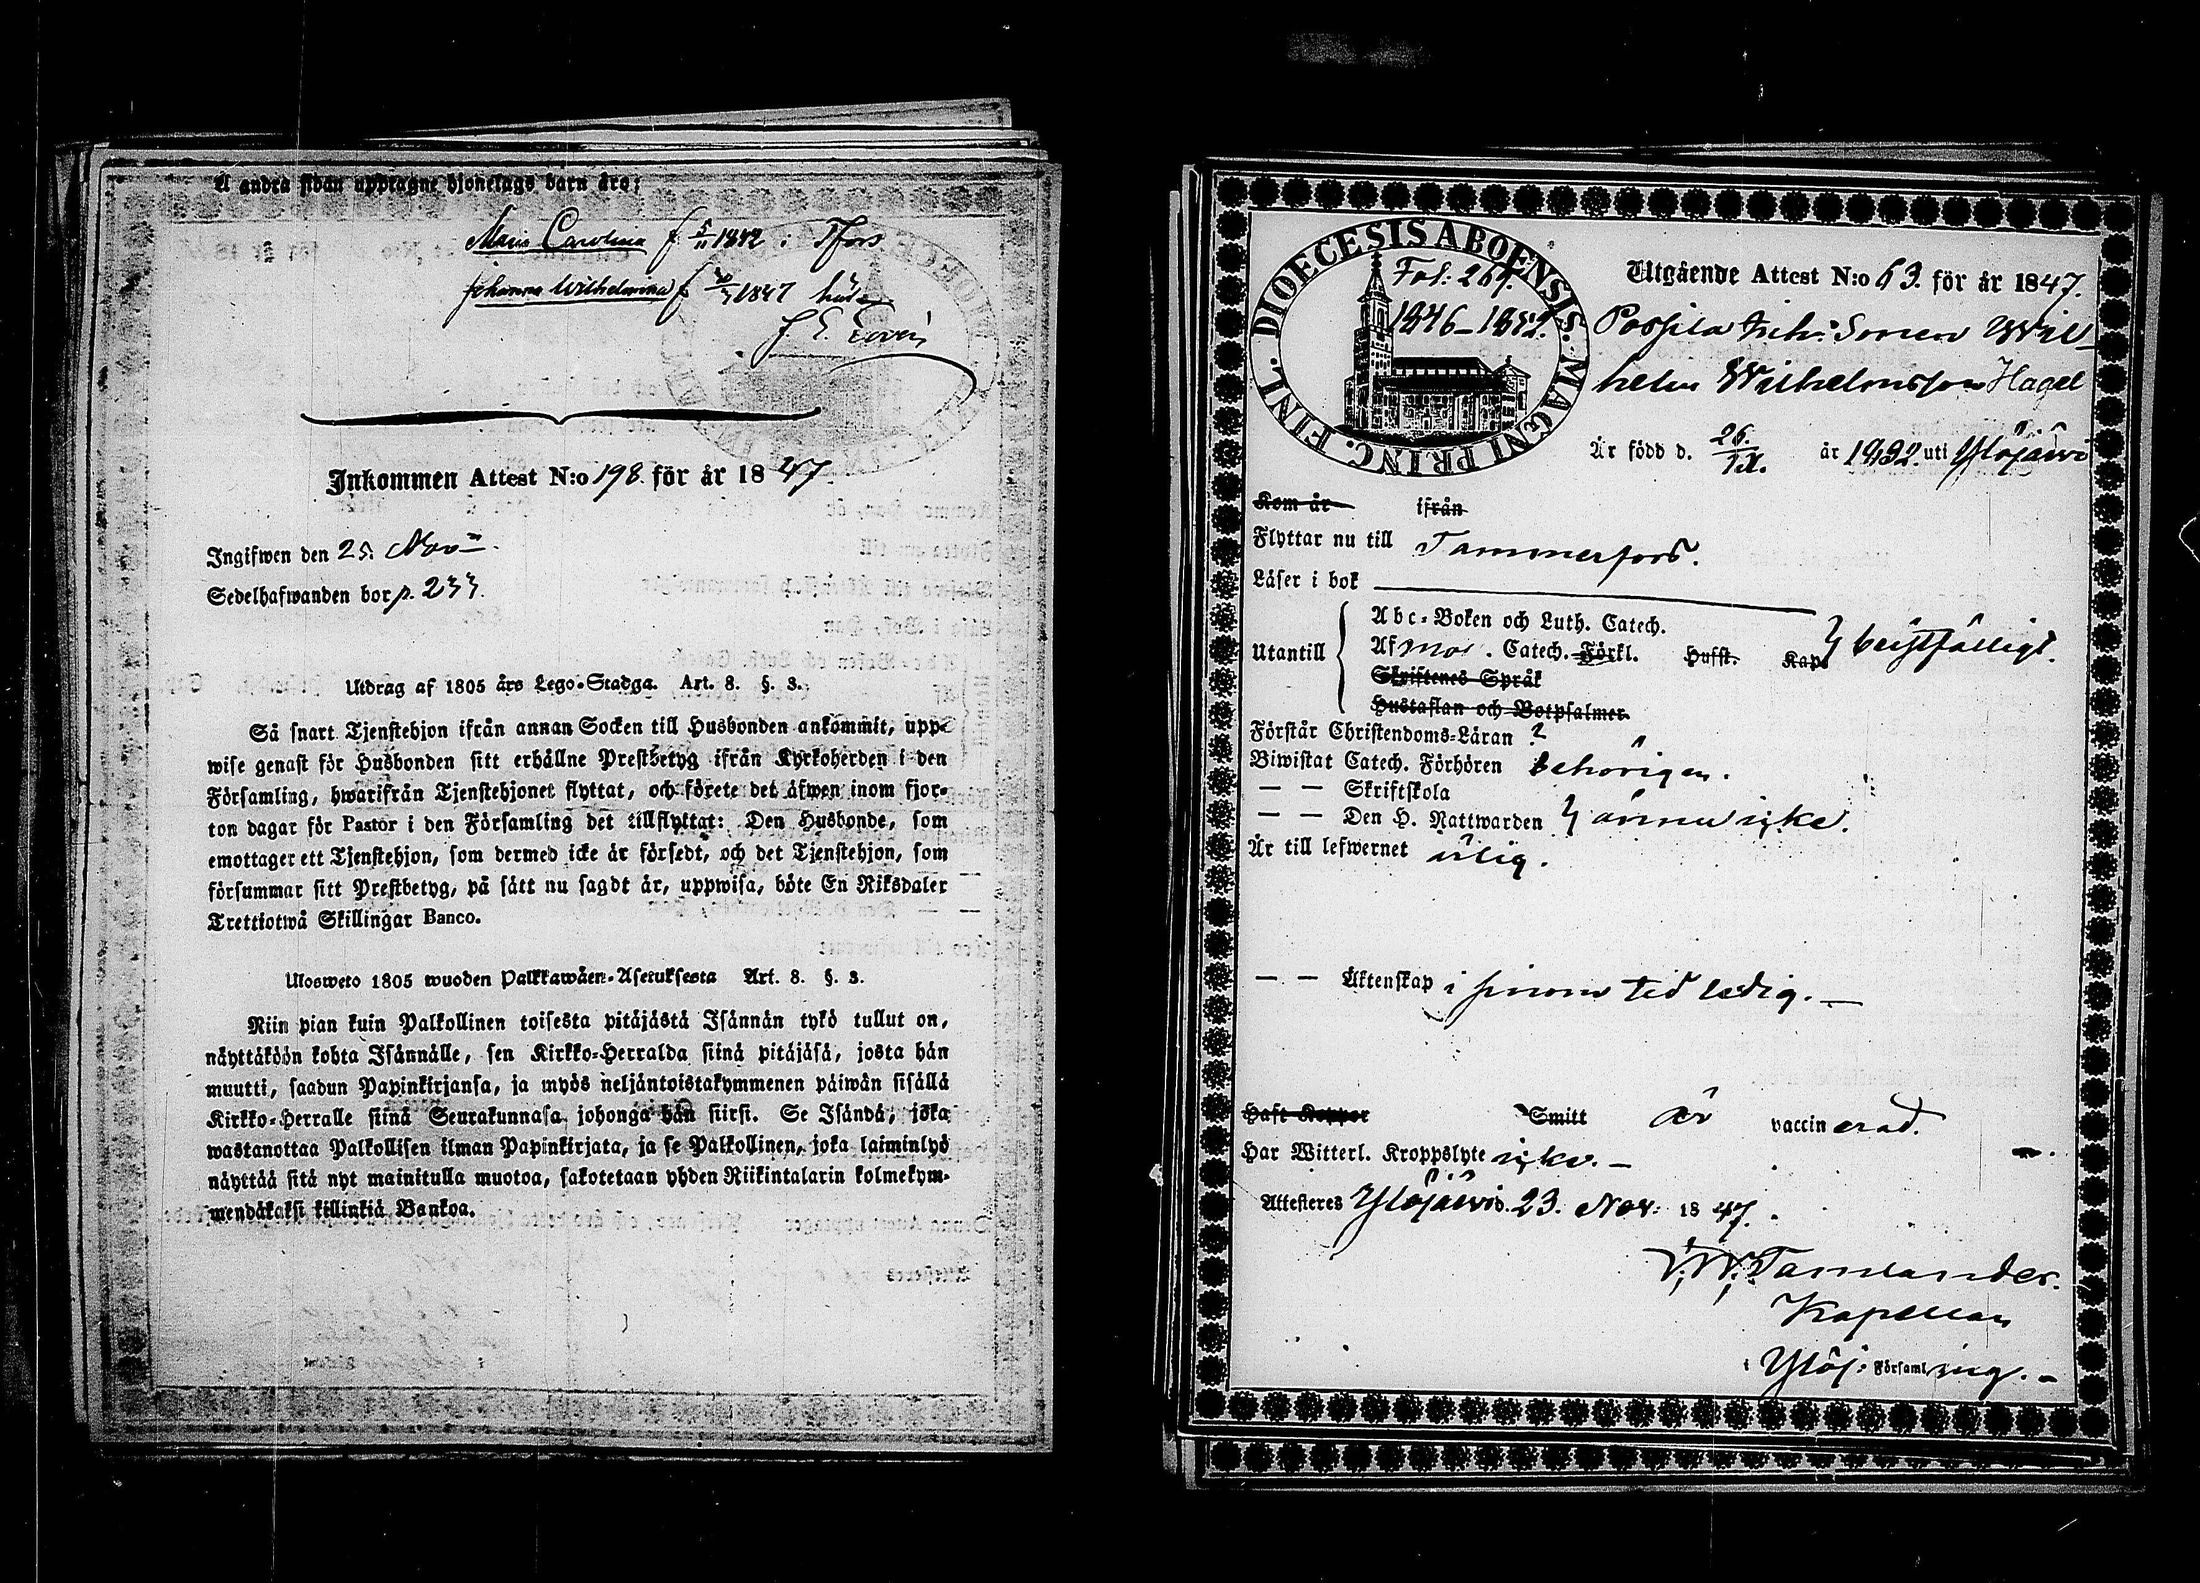 å andra sidan upptagne hjonelags barn äro:
Maria Carolina f. 5/11 1842 i Tfors
Johanna Wilhelmina f. 1847
Inkommen Attest N:o 198 för år 1847
Ingifwen den 25. Nov
Sedelhafwanden bor p. 233.
Utdrag af 1805 års Lego-Stadga. Art. 8. §. 3.
Så snart Tjenstehjon ifrån annan Socken till Husbonden ankommit, upp-
wise genast för Husbonden sitt erhållne Prestbetyg ifrån Kyrkoherden i den
Församling, hwarifrån Tjenstehjonet flyttat, och förete det äfwen inom fjor-
ton dagar för Pastor i den Församling det tillflyttat: Den Husbonde, som
emottager ett Tjenstehjon, som dermed icke är försedt, och det Tjenstehjon, som
försummar sitt Prestbetyg, på sätt nu sagdt är, uppwisa, böte En Riksdaler
Trettiotwå Skillingar Banco.
Ulosweto 1805 wuoden Palkkawäen-Asetuksesta Art. 8. §. 3.
Niin pian kuin Palkollinen toisesta pitäjästä Isännän tykö tullut on,
näyttäköön kohta Isännälle, sen Kirkko-Herralda siinä pitäjäsä, josta hän
muutti, saadun Papinkirjansa, ja myös neljäntoistakymmenen päiwän sisällä
Kirkko-Herralle siinä Seurakunnasa johonga hän siirsi. Se Isändä, joka
wastanottaa Palkollisen ilman Papinkirjata, ja se Palkollinen, joka laiminlyö
näyttää sitä nyt mainitulla muotoa, sakotetaan yhden Riikintalarin kolmekym-
mendäkaksi killinkiä Bankoa.
DIOECESIS ABOENSIS. MAGNI PRINC. FINL.
Fol: 267.
1846-1852.
Utgående Attest N:o 63. för år 1847.
Inh: Sonen Wil-
helm Wilhelmsson Hagel
Är född d. 26./IX. år 1832. uti Ylöjärvi
Kom år ifrån
Flyttar nu till Tammerfors.
Läser i bok
Utantill
Abc-Boken och Luth. Catech.
Af Catech. Förkl. Hufst. Kap.
Skriftenes Språk
Hustaflan och Botpsalmer
bristfälligt.
Förstår Christendoms-Läran ?
Biwistat Catech. Förhören behörigen.
— — Skriftskola
— — Den H. Nattwarden } ännu icke.
Är till lefwernet
— — Äktenskap i sinom tid ledig. —
Haft Koppor Smitt är vaccinerad.
Har Witterl. Kroppslyte icke. —
Attesteres Ylöjärvi d. 23. Nov. 1847.
Kapellan
i Ylöj: Församling. —